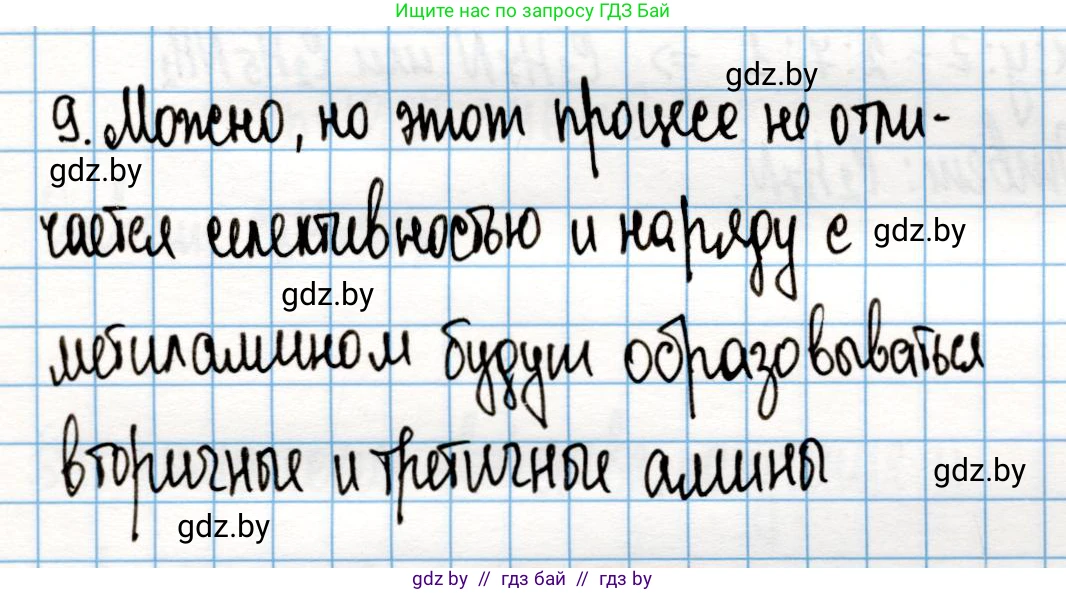 Ищите нас по запросу ГДЗ Бай
gdz.by
9. Можно, но этот процесс не отли-
gdz.by
чается селективностью и наряду с gdz.by
gdz.by
метиламином будут образовываться
вторичные и третичные амины gdz.by
gdz.by
gdz by // гдз бай // гдз by